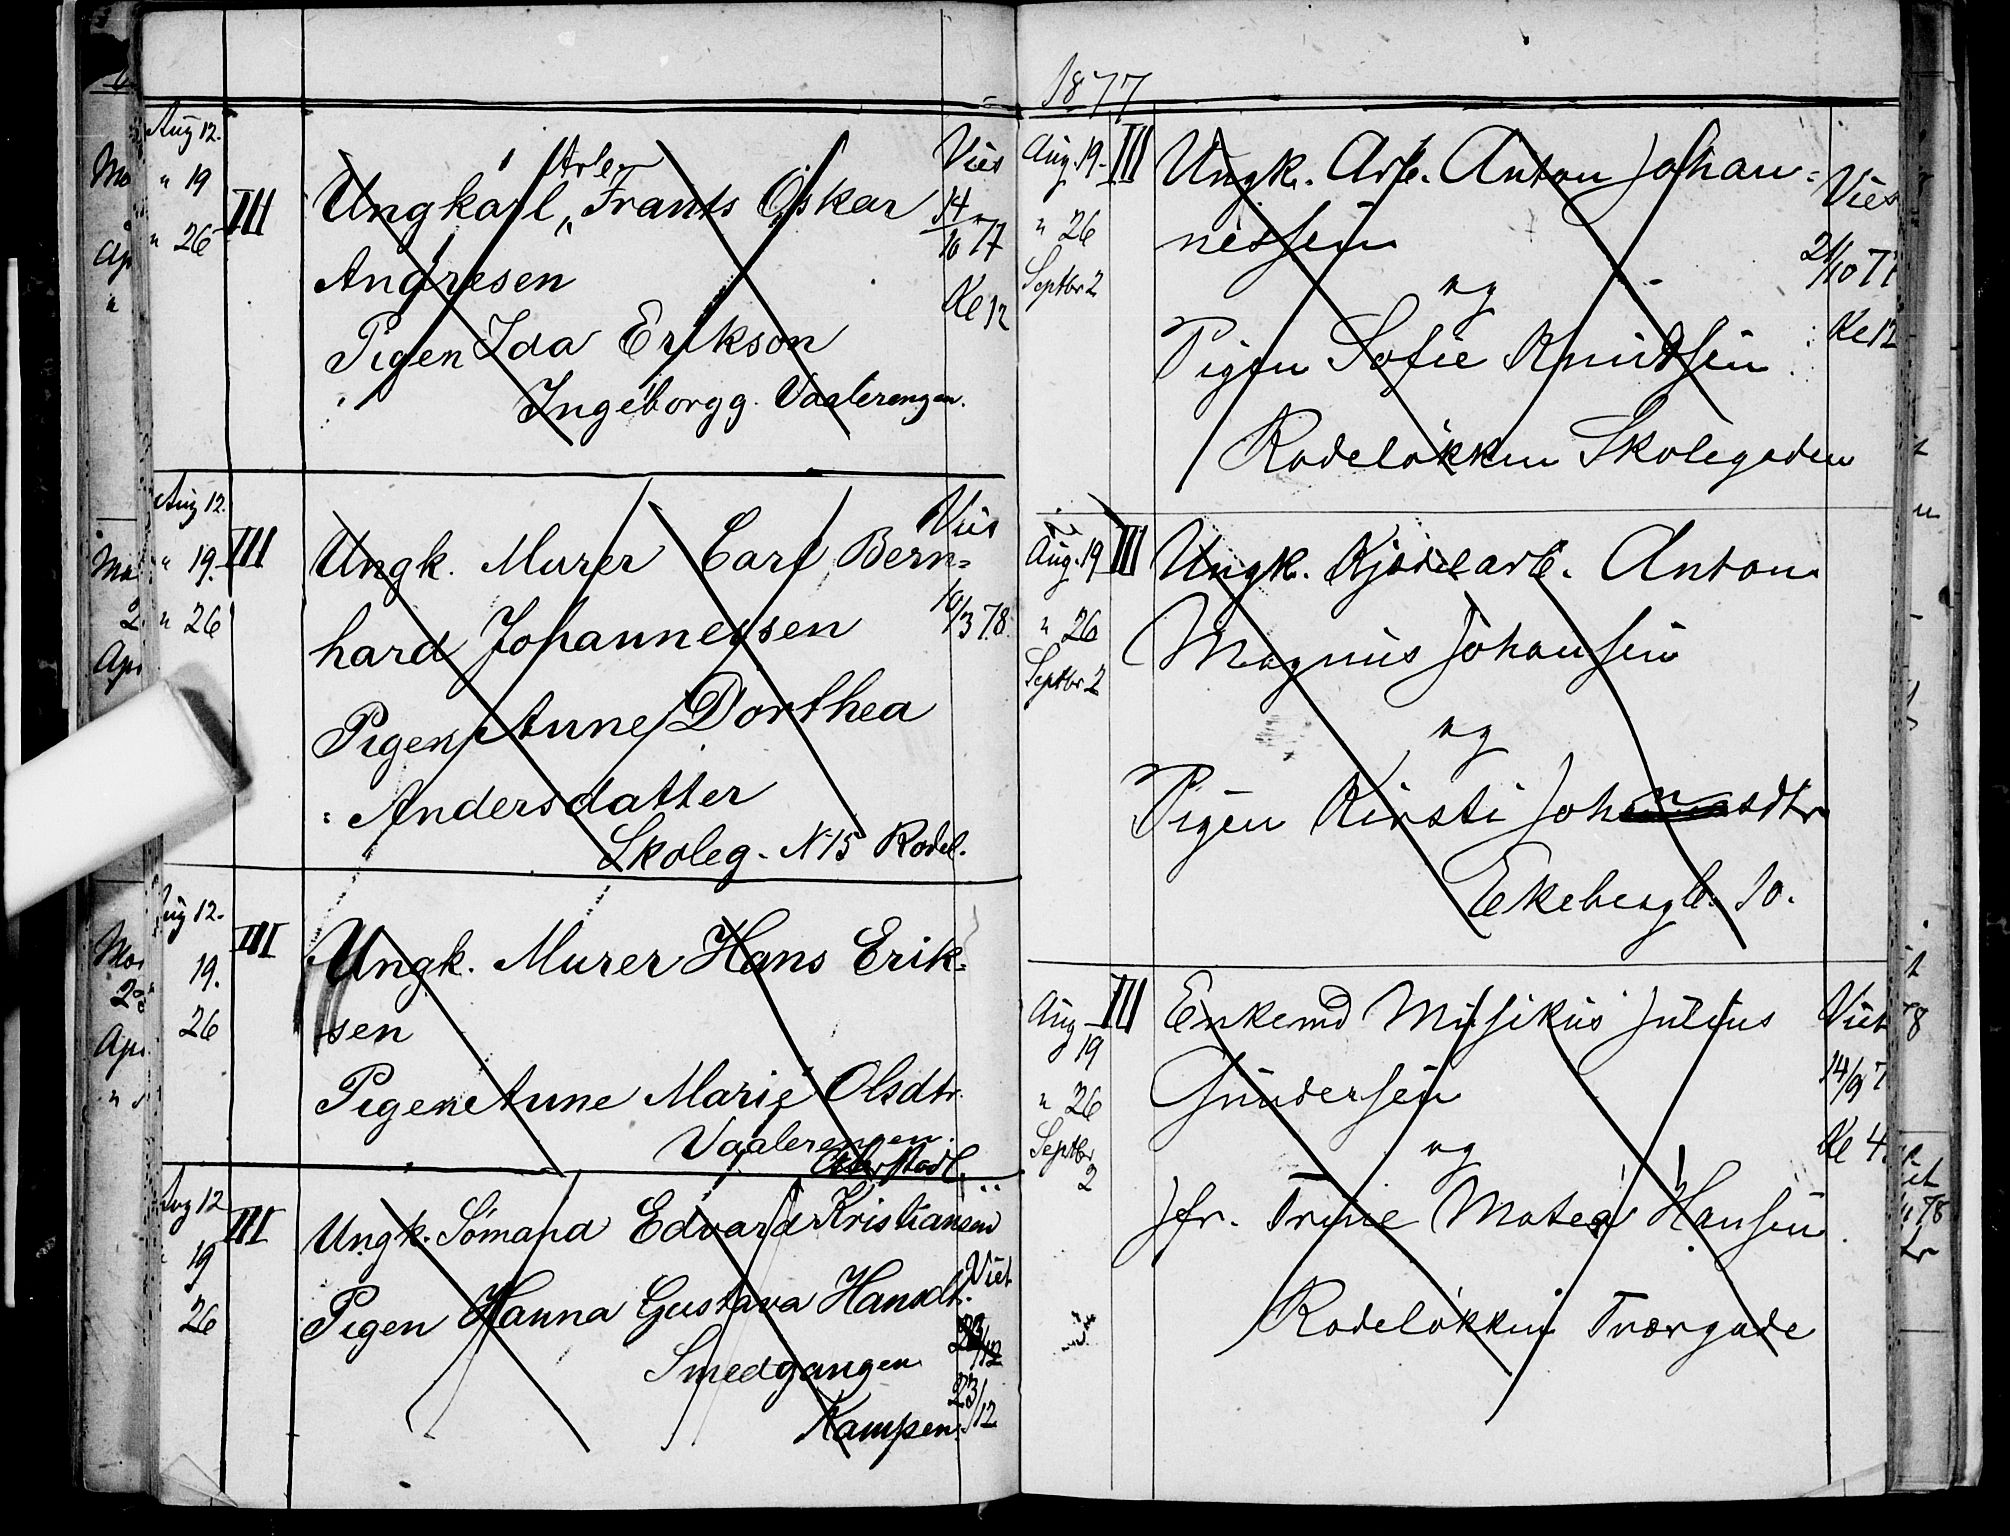 Aug 12.
" 19
" 26
III
Arb.
Ungkarl " Frants Oskar
Andresen
Pigen Ida Erikson
Ingeborgg. Vaalerengen.
Vies
14/10 77
Ke 12
Aug 12.
" 19.
" 26
III
Ungk. Murer Carl Bern=
hard Johannesen
Pigen Anne Dorthea
Andersdatter
Skoleg. N 15 Rodel.
Vies
10/3 78.
Aug 12.
19.
26
III
Ungk. Murer Hans Erik=
sen
Pigen Anne Marie Olsdtr.
Vaalerengen.
Aug 12
19
26
III
Ungk. Sömand Edvard Kristiansen
Pigen Hanna Gustava Hansdt.
Smedgangen
Kampen.
Viet
23/12
23/12
1877
Aug. 19.
" 26
Septbr 2
III
Ungk. Arb. Anton Johan=
nessen
og
Pigen Sofie Knudsen
Rodeløkken Skolegaden
Vies
21/10 77
Ke 12
Aug. 19
" 26
Septbr 2
III
Ungk. Kjørelarb. Anton
Magnus Johansen
og
Pigen Kirsti Johansdtr
Ekebergb. 10.
Aug
19
" 26
Septbr
2
III
Enkemd Musikus Julius
Gundersen
og
Jfr. Trine Matea Hansen.
Rodeløkken Tværgade
Viet
14/9 7
Ke 4.